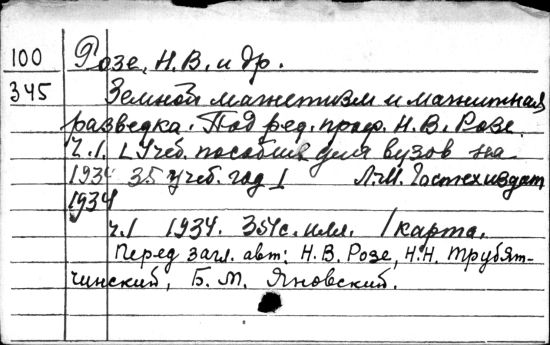 100 Розе, Н.В. и др.
345 Земной магнетизм и магнитная
разведка. Под ред. проф. Н.В. Розе.
Ч.1. [Учеб. пособие для вузов на
1934 35 учеб. год] Л.-М. Гостехиздат
1934
ч.1 1934. 354с. илл. 1 карта.
Перед загл. авт: Н.В. Розе, Н.Н. Трубят-
чинский, Б.М. Яновский.